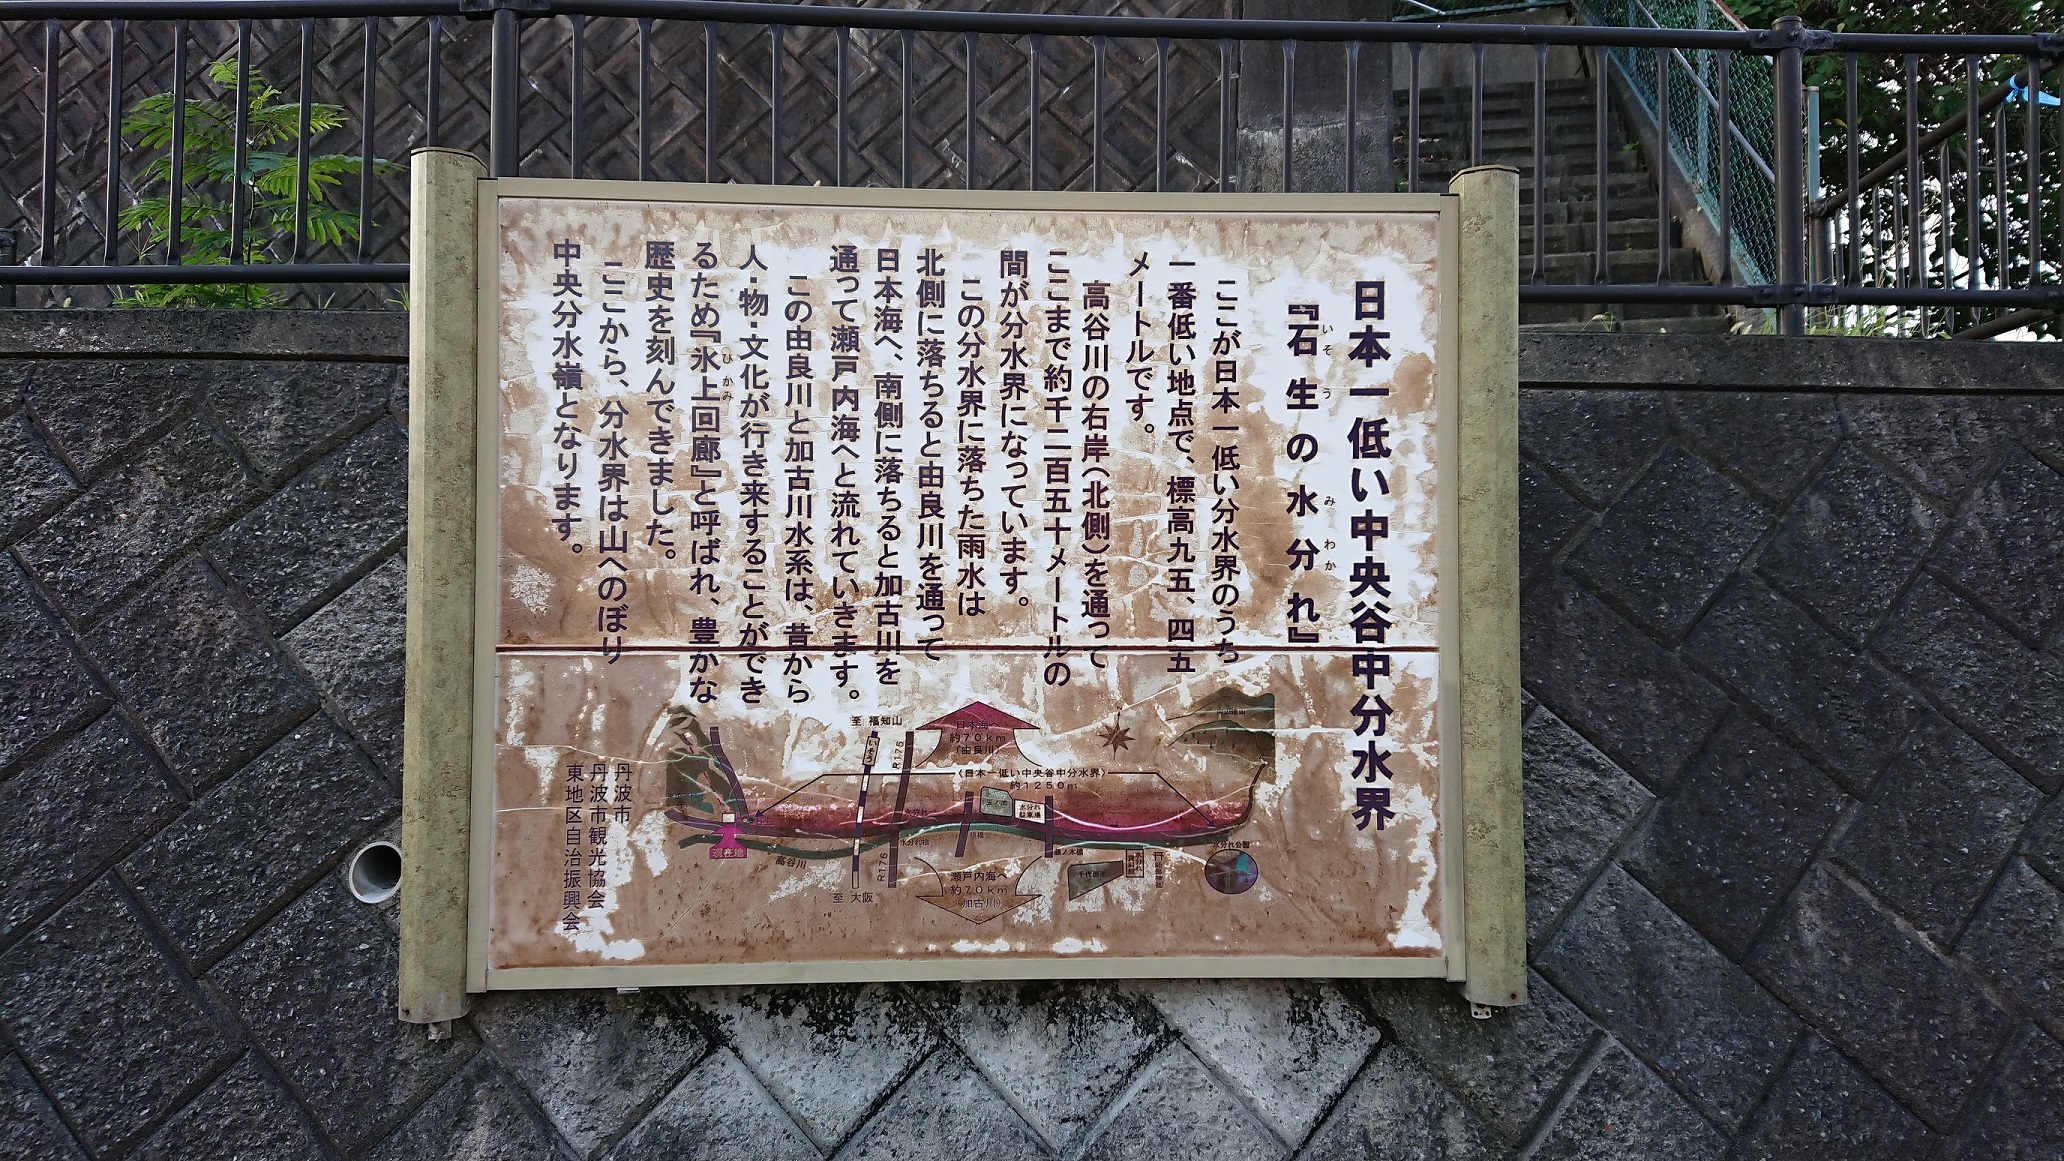 日本一低い中央谷中分水界
『石生の水分れ』
いそう
みわか
ここが日本一低い分水界のうち
一番低い地点で、標高九五、四五
メートルです。
高谷川の右岸(北側)を通って
ここまで約千二百五十メートルの
間が分水界になっています。
この分水界に落ちた雨水は
北側に落ちると由良川を通って
日本海へ、南側に落ちると加古川を
通って瀬戸内海へと流れていきます。
この由良川と加古川水系は、昔から
人・物・文化が行き来することができ
るため『氷上回廊』と呼ばれ、豊かな
ひかみ
歴史を刻んできました。
ここから、分水界は山へのぼり
中央分水嶺となります。
丹波市
丹波市観光協会
東地区自治振興会
至 福知山
いそう
R175
日本海へ
約70km
(由良川)
〈日本一低い中央谷中分水界〉
約1250m
水分れ
駐車場
現在地
高谷川
R176
水分れ橋
至 大阪
瀬戸内海へ
約70km
(加古川)
水分れ公園